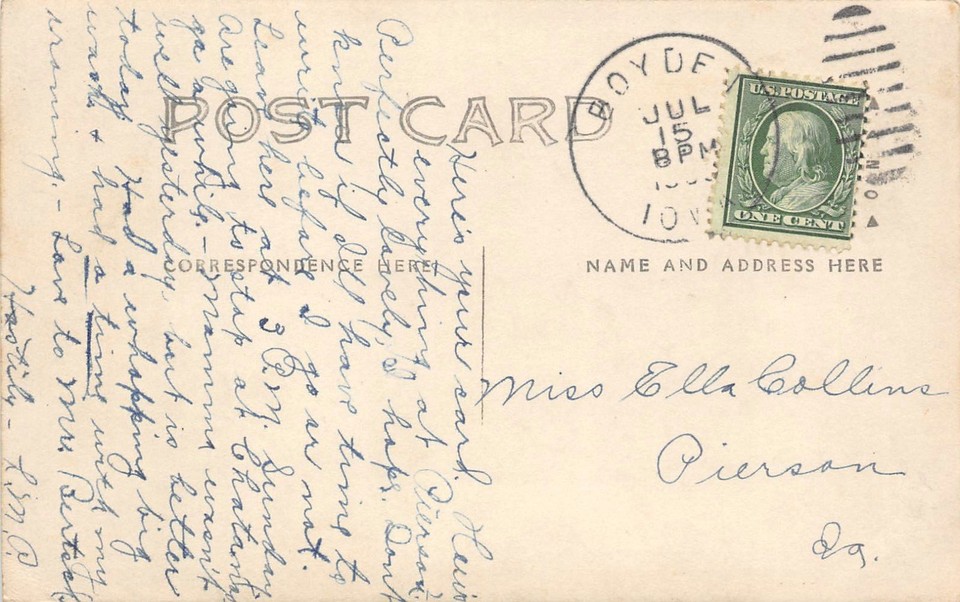 POST CARD
CORRESPONDENCE HERE
NAME AND ADDRESS HERE
BOYDEN
JUL
15
8 PM
IOWA
U.S. POSTAGE
ONE CENT
Miss Ella Collins
Pierson
Ia.
Here's your card. How's
everything at Pierson?
Perfectly lovely, I hope. Don't
know if I'll have time to
write before I go or not.
Leave here at 3 P.M. Sunday
to stop at
ga awhile. - Mamma wasn't
well yesterday, but is better
today. Had a whopping big
wash & had a time with my
ironing. - Love to Mrs.
Hastily - L.M.P.